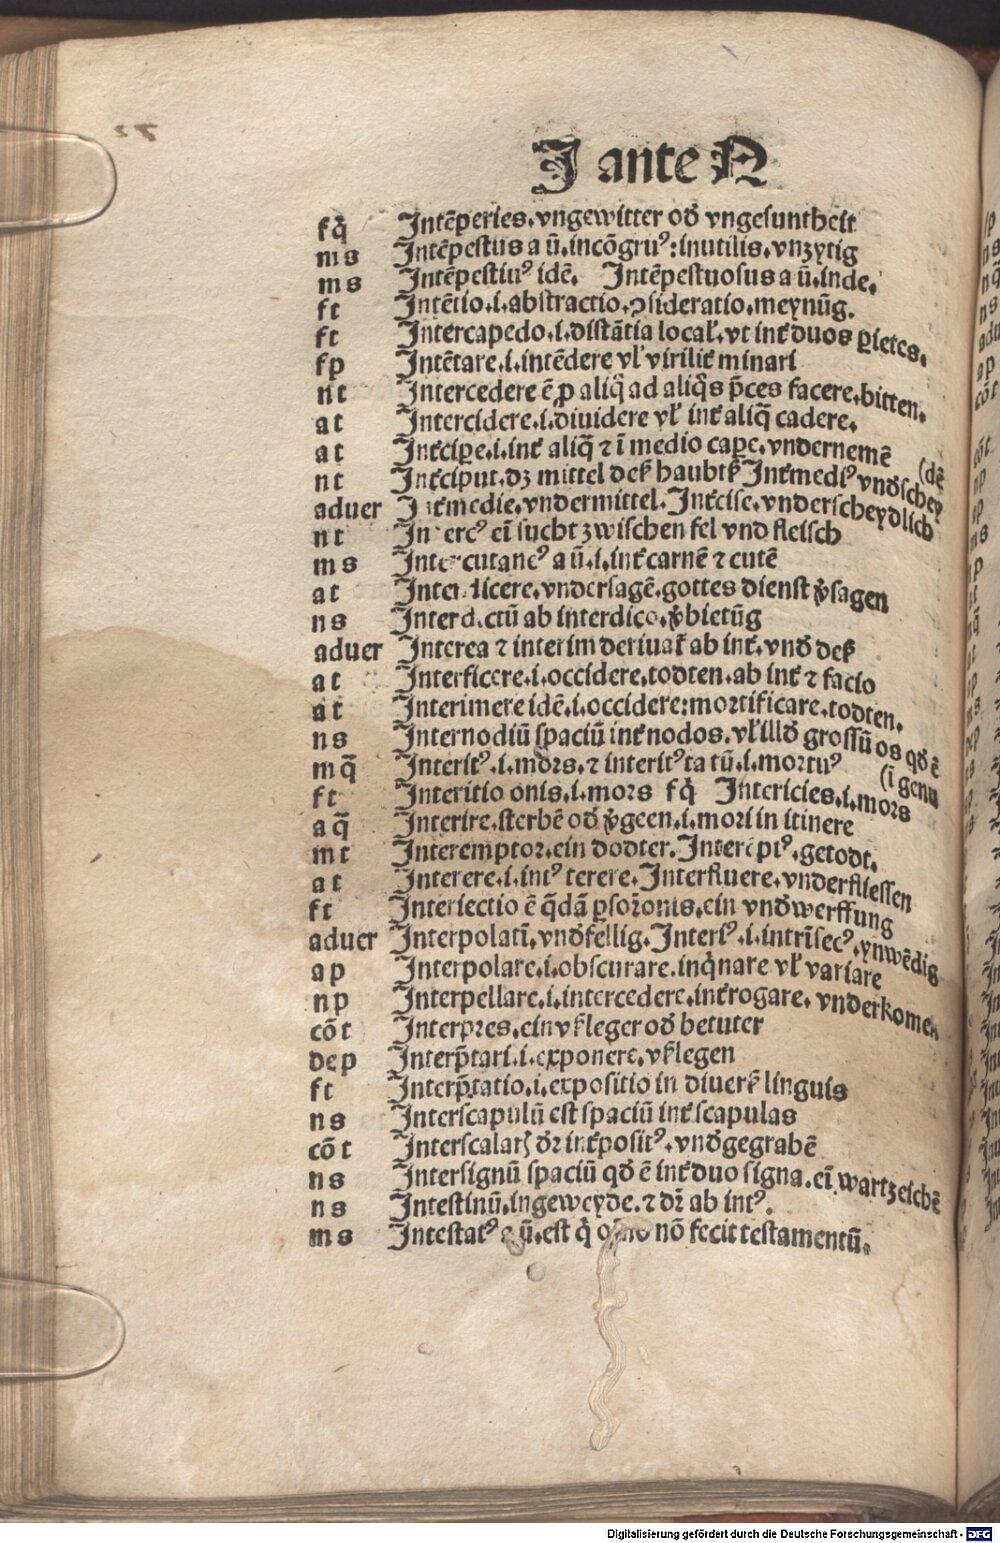 J ante N
fq̄ Jntēperies.vngewitter od̄ vngesuntheit
ms Jntēpestus a ū.incōgruꝰ:inutilis.vnzytig
ms Jntēpestiuꝰ idē. Jntēpestuosus a ū.inde.
ft Jntētio.i.abstractio.ꝯsideratio.meynūg.
ft Jntercapedo.i.distātia localꝭ.vt int̄ duos ꝑietes.
fp Jntētare.i.intēdere vl̓ virilit̄ minari
nt Jntercedere ē ꝓ aliq̄ ad aliq̄s p̄ces facere.bitten.
at Jntercidere.i.diuidere vl̓ int̄ aliq̄ cadere.
at Jnt̄ciꝑe.i.int̄ aliq̄ ⁊ ī medio caꝑe.vndernemē
nt Jnt̄ciput.dz mittel deß haubtß Jnt̄mediꝰ vnd̄schey (dē
aduer Jnt̄medie.vndermittel.Jnt̄cise.vnderscheydlich
nt Jntercꝰ eī sucht zwischen fel vnd fleisch
ms Jntercutaneꝰ a ū.i.int̄ carnē ⁊ cutē
at Jnterdicere.vndersagē.gottes dienst v̄sagen
ns Jnterdictū ab interdico.v̄bietūg
aduer Jnterea ⁊ interim deriuat̄ ab int̄.vnd̄ deß
at Jnterficere.i.occidere.todten.ab int̄ ⁊ facio
at Jnterimere idē.i.occidere:mortificare.todten.
ns Jnternodiū spaciū int̄ nodos.vl̓ illd̄ grossū os qd̄ ē
mq̄ Jnteritꝰ.i.mors.⁊ interitꝰ ta tū.i.mortuꝰ (ī genu
ft Jnteritio onis.i.mors fq̄ Jntericies.i.mors
aq̄ Jnterire.sterbē od̄ v̄geen.i.mori in itinere
mt Jnteremptor.ein dodter.Jnterēptꝰ.getodt.
at Jnterere.i.intꝰ terere.Jnterfluere.vnderfliessen
ft Jnteriectio ē q̄dā ꝑs or̄onis.ein vnd̄werffung
aduer Jnterpolatī.vnd̄fellig.Jnteriꝰ.i.intrīsecꝰ.ynwēdig
ap Jnterpolare.i.obscurare.inq̄nare vl̓ variare
np Jnterpellare.i.intercedere.int̄rogare.vnderkomen
cōt Jnterpres.ein vßleger od̄ betuter
dep Jnterp̄tari.i.exponere.vßlegen
ft Jnterp̄tatio.i.expositio in diuerß linguis
ns Jnterscapulū est spaciū int̄ scapulas
cōt Jnterscalarꝭ dr̄ int̄positꝰ.vnd̄gegrabē
ns Jntersignū spaciū qd̄ ē int̄ duo signa.eī wartzeichē
ns Jntestinū.ingeweyde.⁊ dr̄ ab intꝰ.
ms Jntestatꝰ a ū.est q̄ nō fecit testamentū.
Digitalisierung gefördert durch die Deutsche Forschungsgemeinschaft - DFG